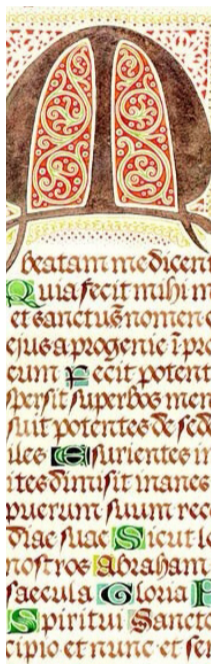 M
beatam me dicent
Quia fecit mihi m
et sanctus nomen
ejus a progenie i pro
eum Fecit potent
spersit superbos men
suit potentes de sed
iles Esurientes im
ites dimisit inanes
puerum suum rec
diae suae Sicut lo
nostros Abraham
saecula Gloria P
Spiritui Sancto
cipio et nunc et sem